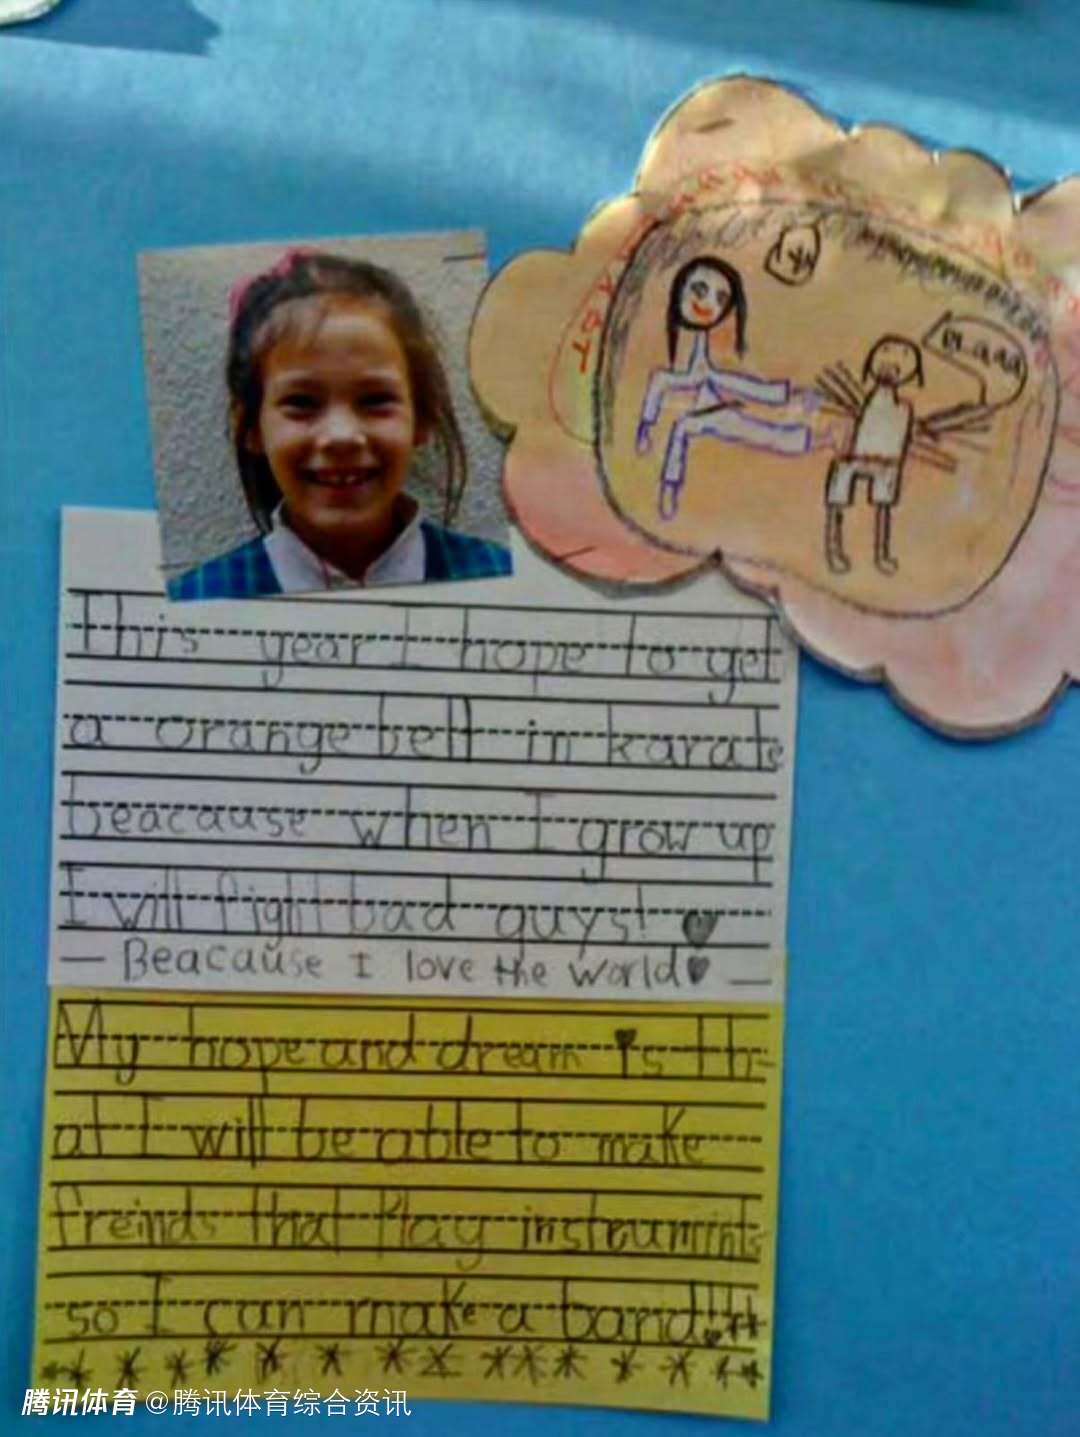 This year I hope to get
a orange belt in karate
beacause when I grow up
I will fight bad guys! ♥
— Beacause I love the world♥ —
My hope and dream is th-
at I will be able to make
freinds that Play instrumints
so I can make a band!!
腾讯体育 @腾讯体育综合资讯